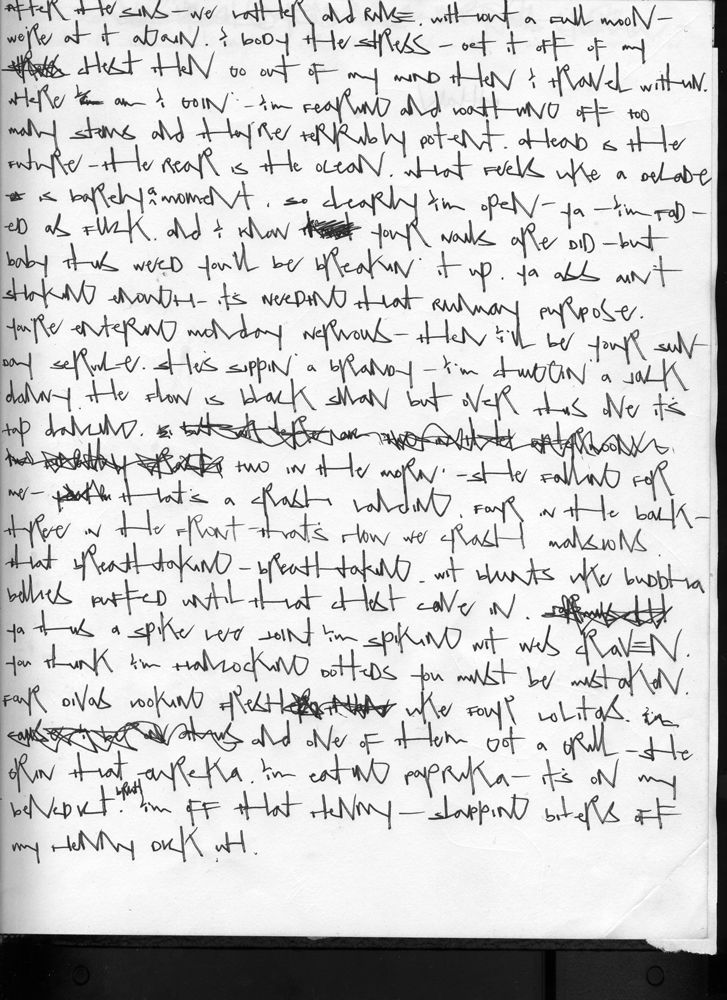 after the sins - we lather and rinse. without a full moon -
we're at it again. i body the stress - get it off of my
chest then go out of my mind then i travel within.
where am i goin' - i'm fearing and loathing off too
many stems and they're terribly potent. ahead is the
future - the rear is the ocean. what feels like a decade
is barely a moment. so clearly i'm open - ya - i'm fad-
ed as fuck. and i know your nails are did - but
baby this weed you'll be breakin' it up. ya ass ain't
shaking enough - it's needing that runway purpose.
you're entering monday nervous - then i'll be your sun-
day service. she's sippin' a brandy - i'm chuggin a jack
danny. the flow is black swan but over this one it's
tap dancing.
two in the morn' - she falling for
me - that's a crash landing. four in the back -
three in the front - that's how we crash mansions.
that breathtaking - breathtaking. wit blunts like buddha
bellies puffed until that chest cave in.
ya this a spike lee joint i'm spiking wit wes craven.
you think i'm hancocking dotteds you must be mistaken.
four divas looking fresh like four lolitas. i'm
and one of them got a grill - she
grin that eureka. i'm eating paprika - it's on my
benedict. i'm off that henny - slapping biters off
my henny dick uh.